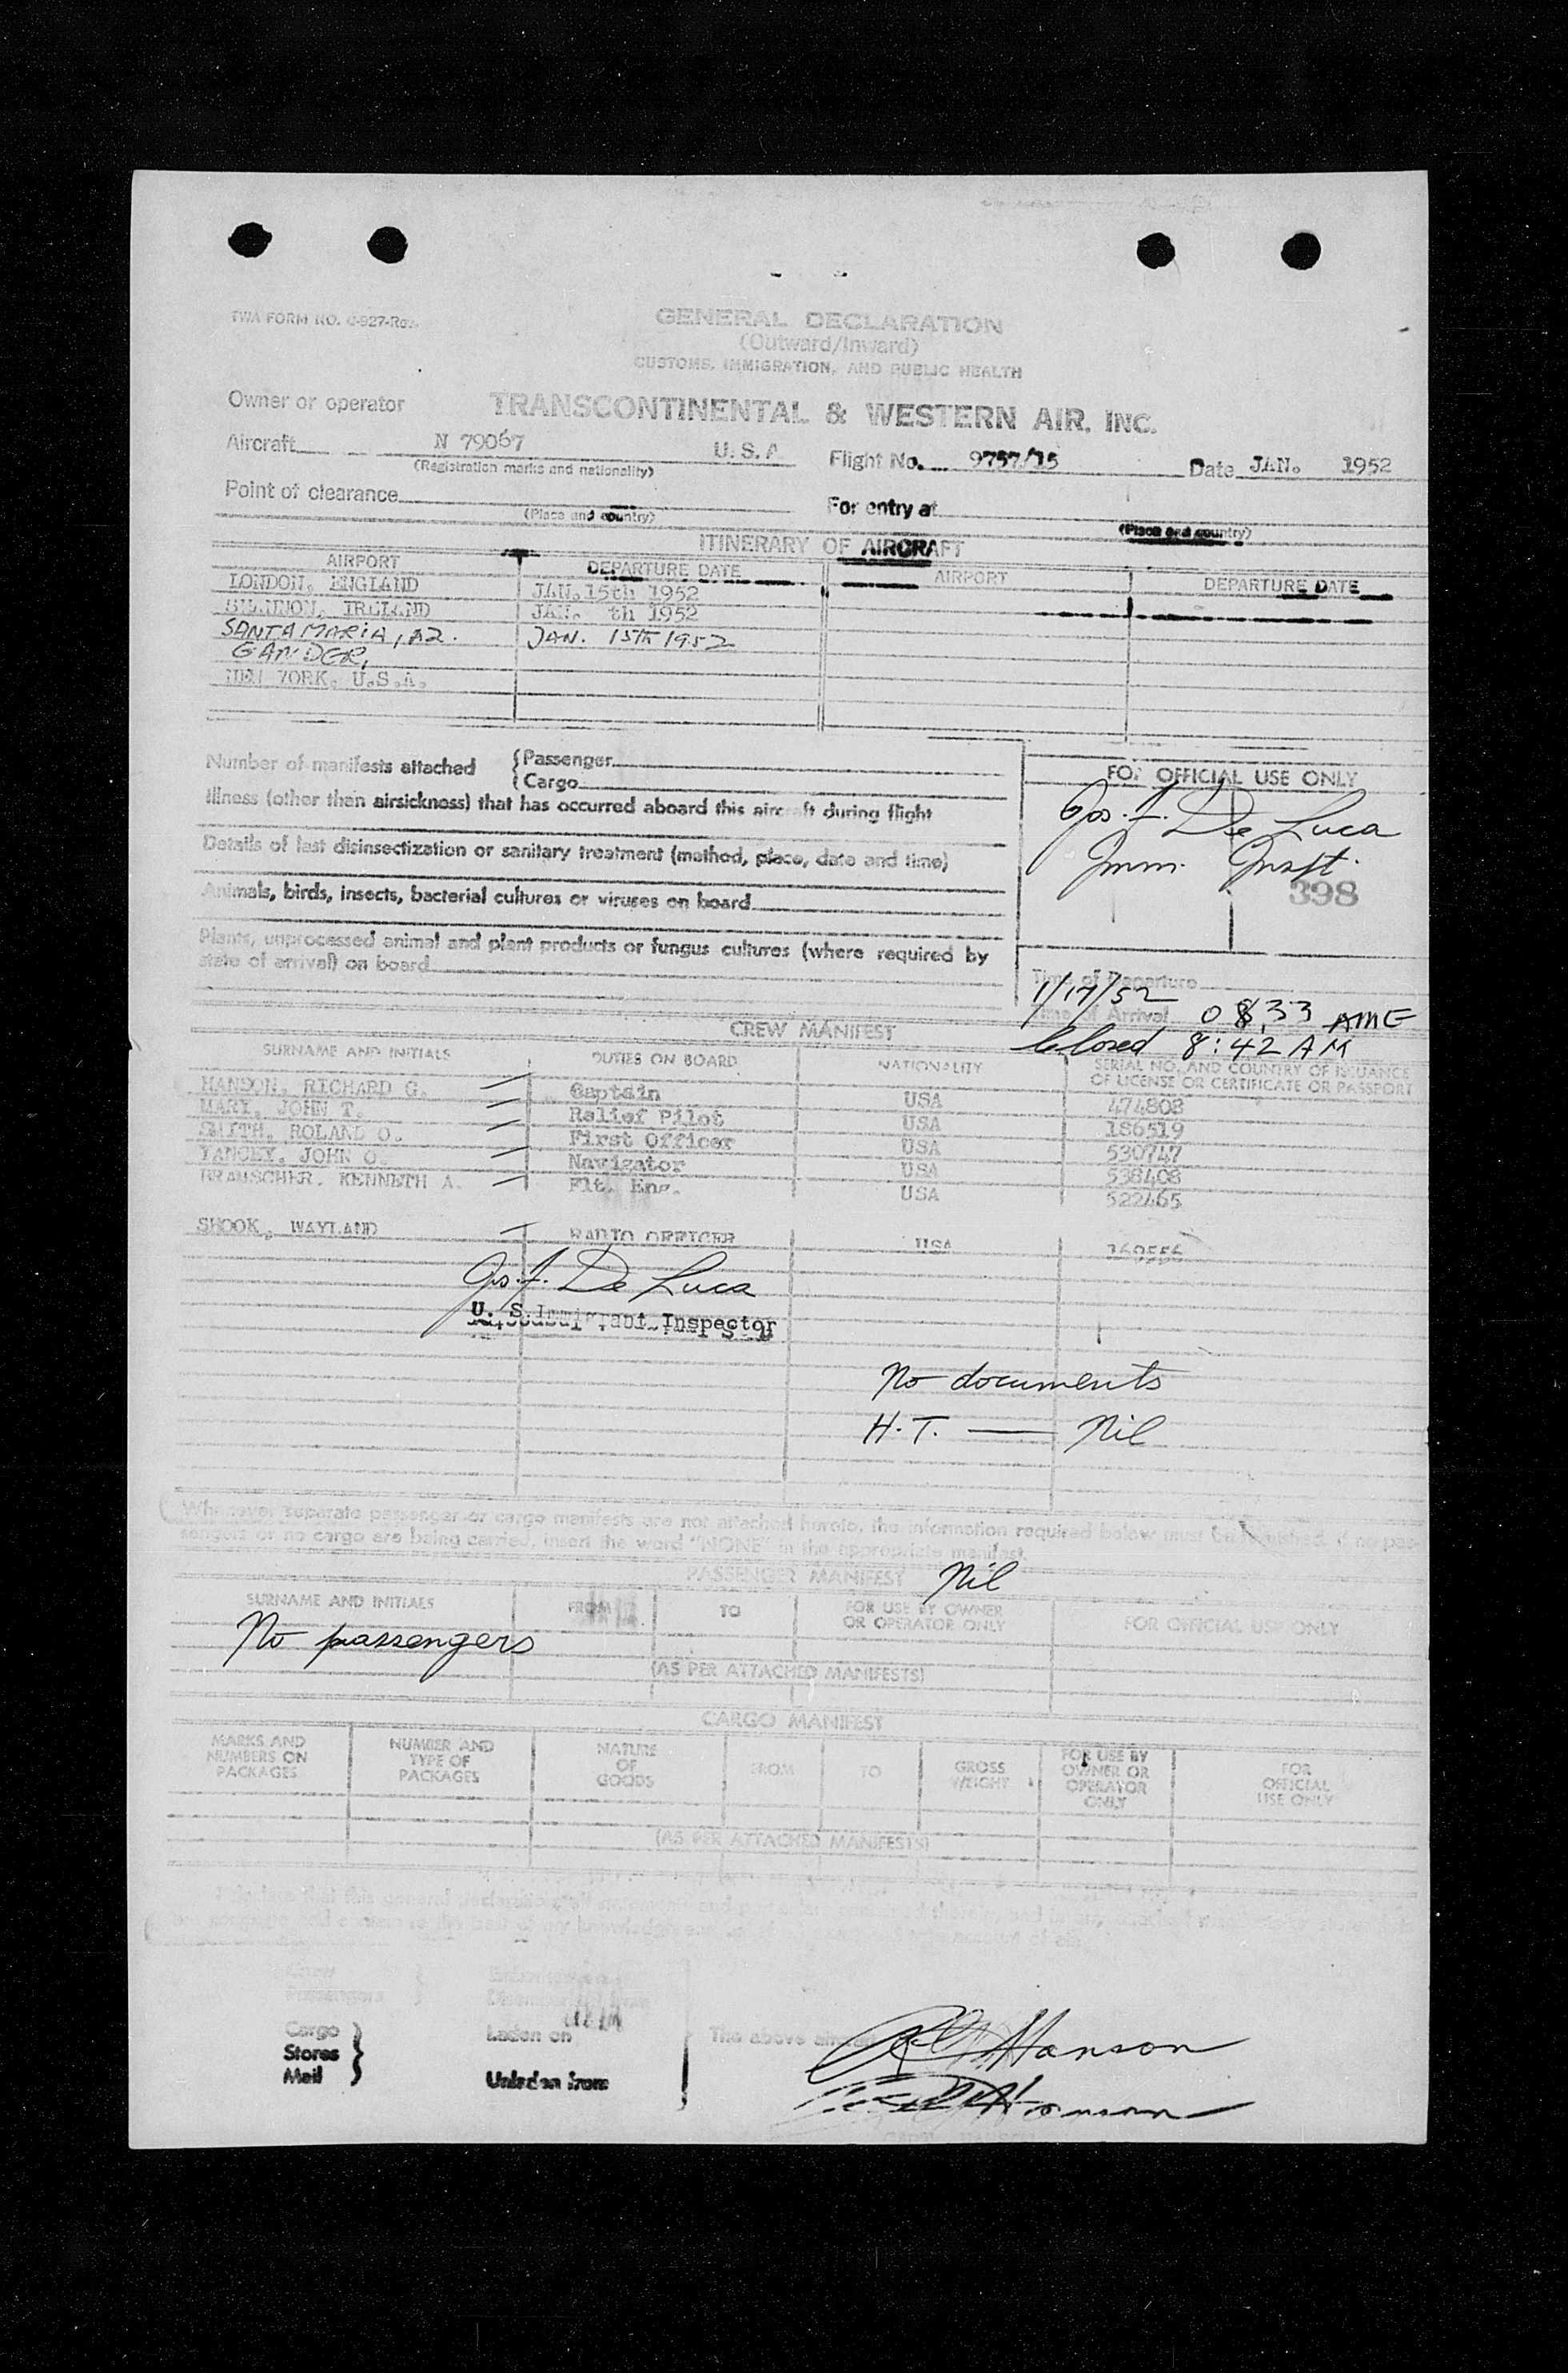 TWA FORM NO. C-927-Rev.
GENERAL DECLARATION
(Outward/Inward)
CUSTOMS, IMMIGRATION, AND PUBLIC HEALTH
Owner or operator TRANSCONTINENTAL & WESTERN AIR, INC.
Aircraft N 79067 U.S.A Flight No. 9757/15 Date JAN. 1952
(Registration marks and nationality)
Point of clearance For entry at
(Place and country) (Place and country)
ITINERARY OF AIRCRAFT
AIRPORT DEPARTURE DATE AIRPORT DEPARTURE DATE
LONDON, ENGLAND JAN. 15th 1952
SHANNON, IRELAND JAN. th 1952
SANTA MARIA, AZ. JAN. 15TH 1952
GANDER,
NEW YORK, U.S.A.
Number of manifests attached { Passenger
{ Cargo
FOR OFFICIAL USE ONLY
Illness (other than airsickness) that has occurred aboard this aircraft during flight
Jos. F. De Luca
Details of last disinsectization or sanitary treatment (method, place, date and time)
Imm. Inspt.
398
Animals, birds, insects, bacterial cultures or viruses on board
Plants, unprocessed animal and plant products or fungus cultures (where required by
state of arrival) on board
Time of Departure
1/17/52
Time of Arrival 0833 AME
Closed 8:42 AM
CREW MANIFEST
SURNAME AND INITIALS DUTIES ON BOARD NATIONALITY SERIAL NO. AND COUNTRY OF ISSUANCE
OF LICENSE OR CERTIFICATE OR PASSPORT
HANSON, RICHARD G. Captain USA 474808
MARY, JOHN T. Relief Pilot USA 186519
SMITH, ROLAND O. First Officer USA 530747
YANCEY, JOHN O. Navigator USA 538408
BRAMSCHER, KENNETH A. Flt. Eng. USA 522465
SHOOK, WAYLAND RADIO OFFICER USA
Jos. F. De Luca
U. S. Immigrant Inspector
No documents
H.T. — Nil
Whenever separate passenger or cargo manifests are not attached hereto, the information required below must be furnished. If no pas-
sengers or no cargo are being carried, insert the word "NONE" in the appropriate manifest.
PASSENGER MANIFEST Nil
SURNAME AND INITIALS FROM TO FOR USE BY OWNER
OR OPERATOR ONLY FOR OFFICIAL USE ONLY
No passengers
(AS PER ATTACHED MANIFESTS)
CARGO MANIFEST
MARKS AND
NUMBERS ON
PACKAGES
NUMBER AND
TYPE OF
PACKAGES
NATURE
OF
GOODS
FROM
TO
GROSS
WEIGHT
FOR USE BY
OWNER OR
OPERATOR
ONLY
FOR
OFFICIAL
USE ONLY
(AS PER ATTACHED MANIFESTS)
Crew
Passengers }
Cargo
Stores
Mail }
Laden on
Unladen from
The above aircraft
R G Hanson
Hanson